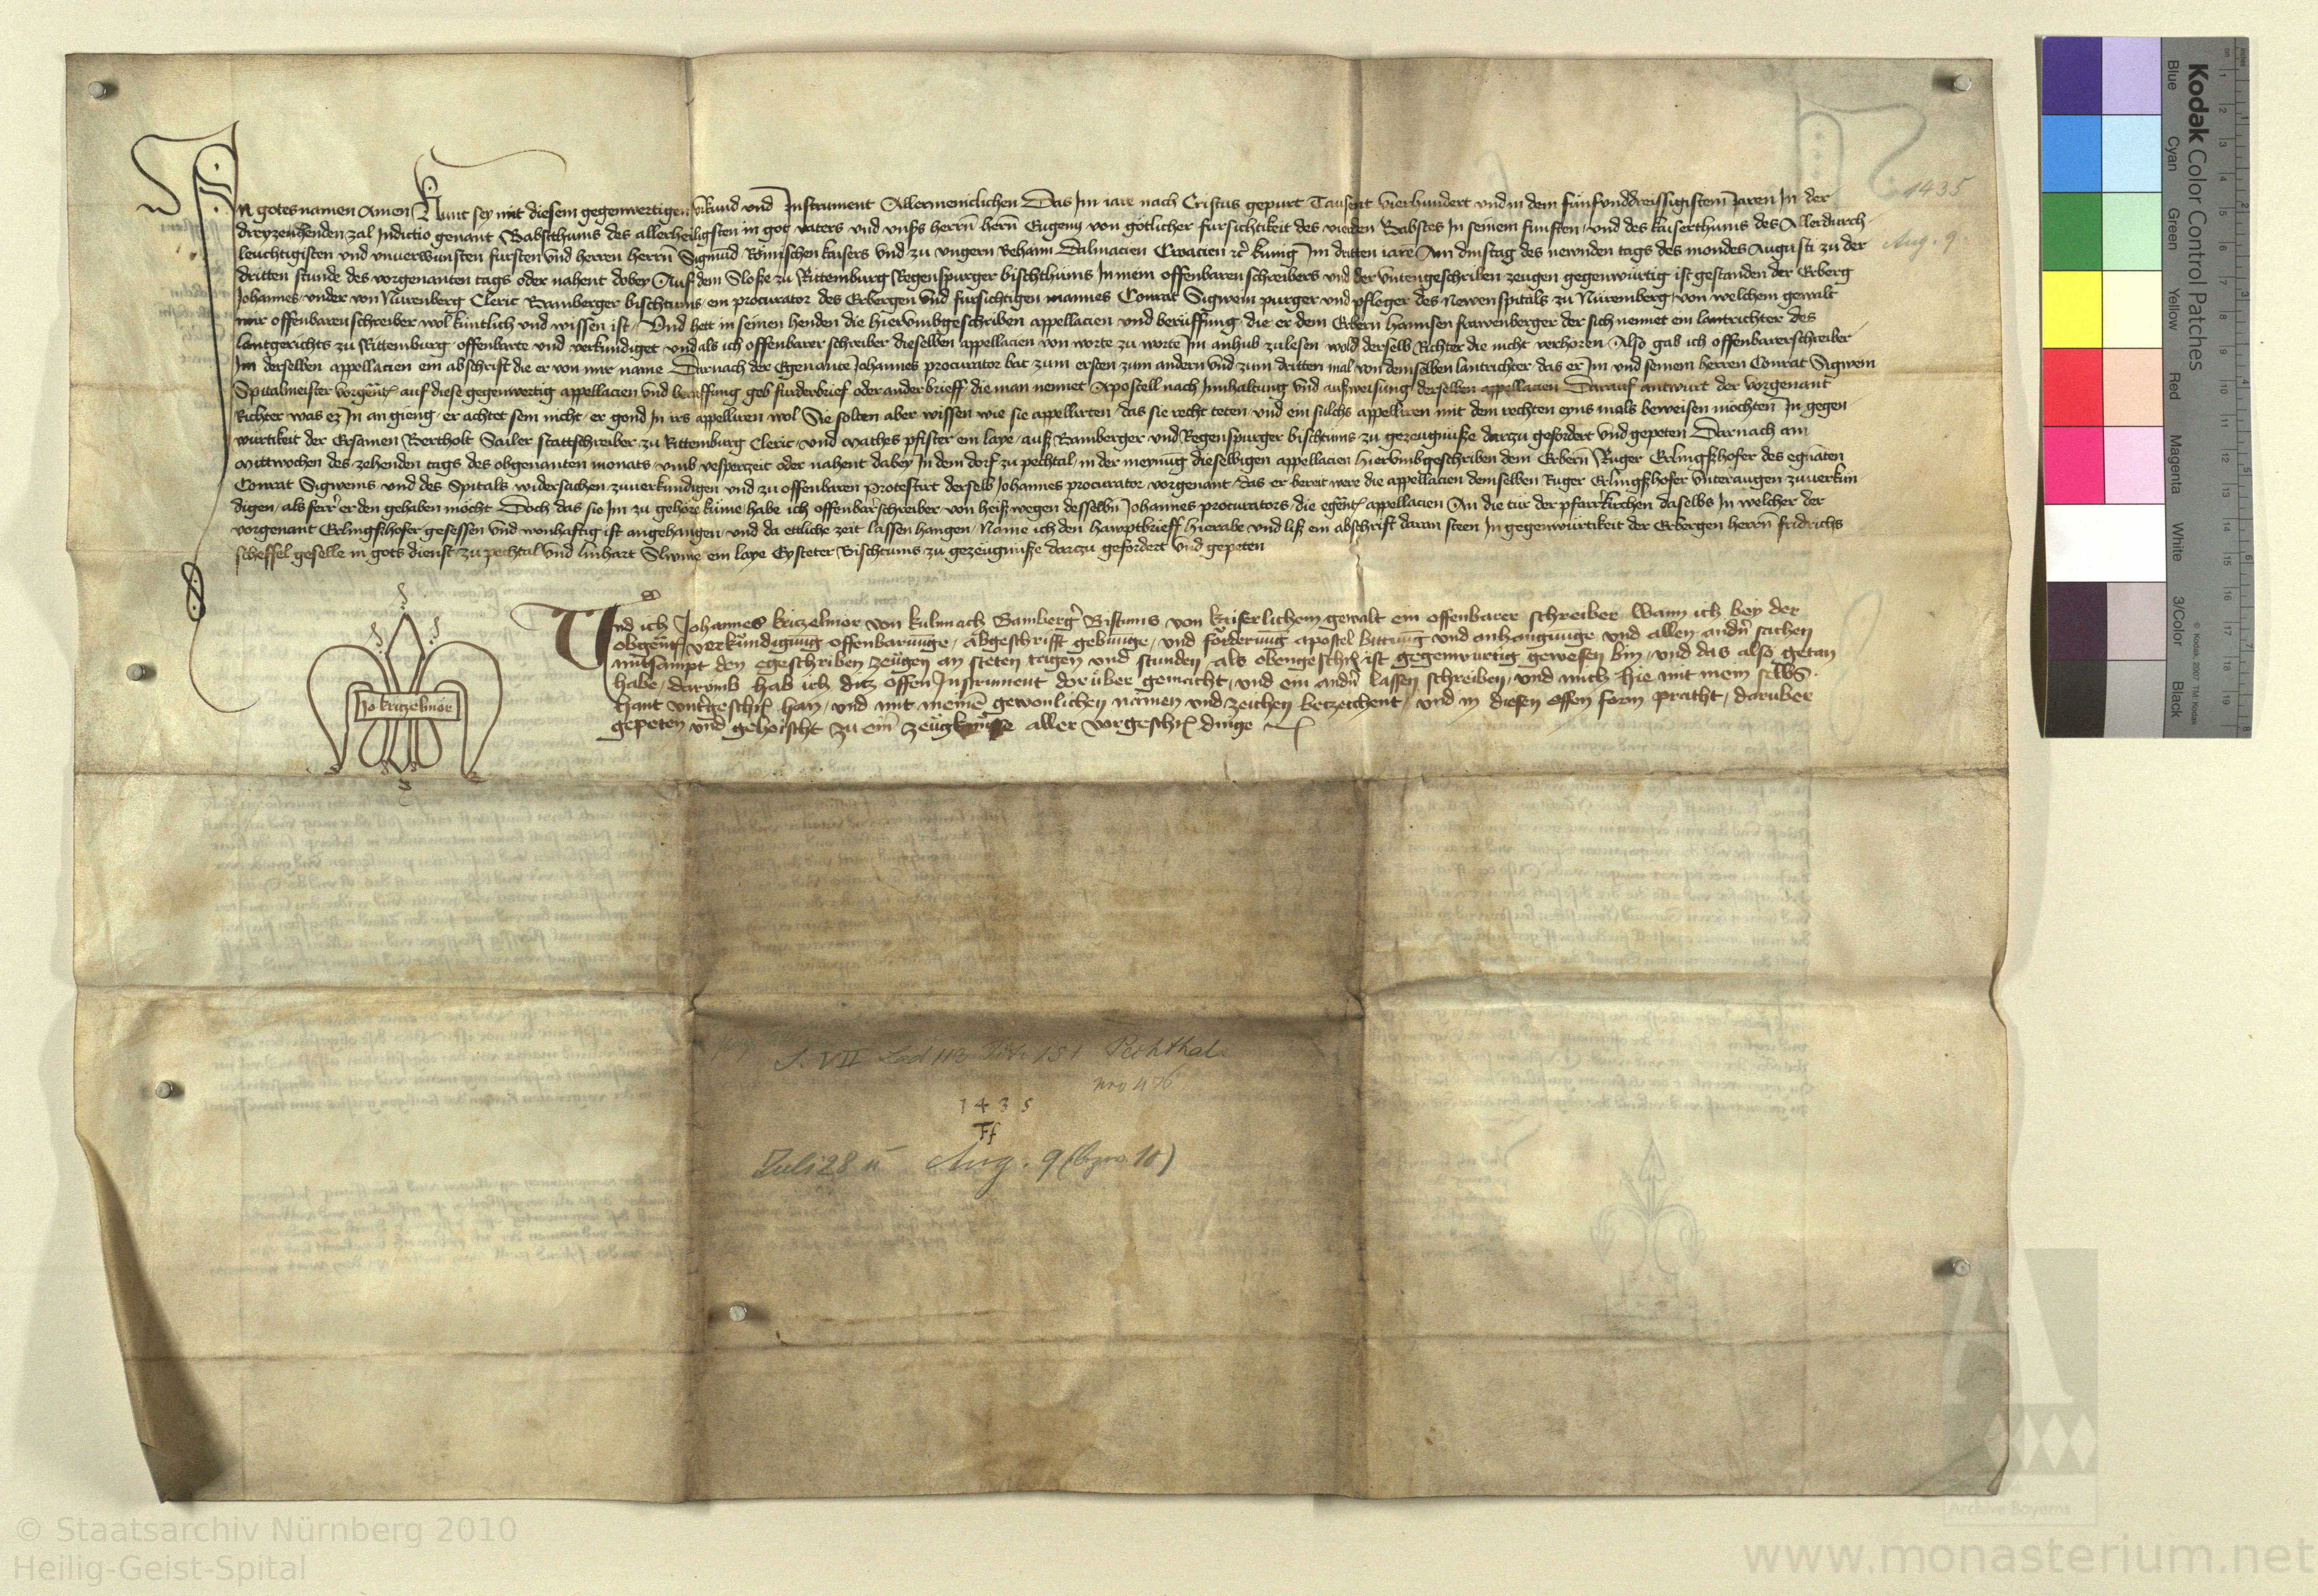 In gotes namen Amen Kunt sey mit diesem gegenwertigen vrkund vnd Instrument Allermeniclichen Das Im iare nach Cristus gepurt Tausent vierhundert vnd in dem funfunddreissigistem Jaren In der
dreyzenhenden zal Indictio genant Babsthums des allerheiligsten in got vaters vnd vnsers herrn hern Eugeny von gotlicher fursichtikeit des vierden Babstes In seinem funften vnd des kaiserthums des Allerdurch
leuchtigisten vnd vnuerwunsten fursten vnd herren herrn Sigmund Römischen kaisers vnd zu vngern Behaim Dalmacien Croacien zc kunig Im dritten iare Am dinstag des newnden tags des mondes Augusti zu der
dritten stunde des vorgenanten tags oder nahent dobey Auf dem Sloße zu Rittemburg Regenspurger bischthums In mein offenbaren schreibers vnd der vntengeschriben zeugen gegenwurtig ist gestanden der Erberg
Johannes vnder von Nurenberg Cleric Bamberger bischtums ein procurator des Erbergen vnd fursichtigen mannes Conrat Sigwein purger vnd pfleger des Newen spitals zu Nuremberg von welchem gewalt
mir offenbaren schreiber wol kuntlich vnd wissen ist Vnd hett in seinen henden die hierumbgeschriben appellacien vnd beruffung die er dem Erbern hannsen frawenberger der sich nennet ein lantrichter des
lantgerichts zu Rittemburg offenbarte vnd verkundiget vnd als ich offenbarer schreiber dieselben appellacien von worte zu worte Im anhub zulesen wold derselb Richter die nicht verhoren Also gab ich offenbarerschreiber
Im derselben appellacien ein abschrift die er von mir name Darnach der Egenante Johannes procurator bat zum ersten zum andern vnd zum dritten mal von demselben lantrichter das er Im vnd seinem herren Conrat Sigwein
Spitalmeister vorgent auf diese gegenwertig appellacien vnd beruffung geb furderbrief oder ander brieff die man nennet Apostell nach Innhaltung vnd außweisung derselben appellacien Darauf antwurt der vorgenant
Richter was ez In an gieng er achtet sein nicht er gond In irs appellirens wol Sie solten aber wissen wie sie appellirten das sie recht teten vnd ein sulchs appelliren mit dem rechten eyns mals beweisen mochten In gegen
wurtikeit der Ersamen Bertholt Sailer stattschreiber zu Rittemburg Cleric vnd Mathes pfister ein laye auß Bamberger vnd Regenspurger bischtums zu gezeugnuße darzu gefordert vnd gepeten Darnach am
Mittwochen des zehenden tags des obgenanten monats vmb vesperzeit oder nahent dabey In dem dorf zu pechtal in der meynung dieselbigen appellacien hierumbgeschriben dem Erbern Ruger Erlingßhofer des egnaten
Conrat Sigweins vnd des Spitals widersachen zuuerkundigen vnd zu offenbaren Protestirt derselb Johannes procurator vorgenant das er bereit were die appellacien demselben Ruger Erlingßhofer vnteraugen zuuerkun
digen als ferr er den gehaben möcht Doch das sie Im zu gehöre kume habe ich offenbarer schreiber von heiß wegen desselbn Johannes procurators die egent appellacien An die tür der pfarrkirchen daselbs In welcher der
vorgenant Erlingßhofer gesessen vnd wonhaftig ist angehangen vnd da ettliche zeit lassen hangen Name ich den hauptbrieff hierabe vnd liß ein abschrift daran steen In gegenwürtikeit der Erbergen herrn fridrichs
scheffel geselle in gots dienst zu pechtal vnd linhart ein laye Eysteter Bischtums zu gezeügnuße darzu gefordert vnd gepeten
Vnd ich Johannes kritzelmor von kulmnach Bamberger Bistums von kaiserlichem gewalt ein offenbarer schreiber Wann ich bey der
obgent verkündigung offenbarunge abgeschrifft gebunge vnd forderung apostel bittung vnd anhangunge vnd allen andn sachen
mitsampt den egeschriben zeügen an steten tagen vnd stunden als obengeschr ist gegenwurtig gewesen bin vnd das also getan
habe darumb hab ich ditz offen Instrument dorüber gemacht vnd ein andn lassen schreiben vnd mich hie mit mein selbs
hant vntergeschr han vnd mit meine gewonlichen namen vnd zeichen betzeichent vnd in diesen offen form pracht daruber
gepeten vnd geheischt zu eim zeügknüsse aller vorgeschr dinge
Jo kritzelmor
1435
Aug. 9
S. VII Lad 113 Tit. 151 Pechthal
nro 476
1435
Ff
Juli 28 u Aug. 9 (bzw. 10)
Kodak Color Control Patches
Blue Cyan Green Yellow Red Magenta White 3/Color Black
© Kodak, 2007 TM Kodak
© Staatsarchiv Nürnberg 2010
Heilig-Geist-Spital
Archive Bayerns
www.monasterium.net